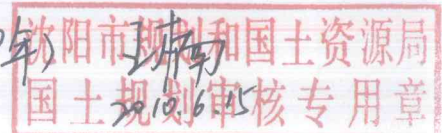 年)沈阳市规划和国土资源局
国土规划审核专用章
2010.6.15